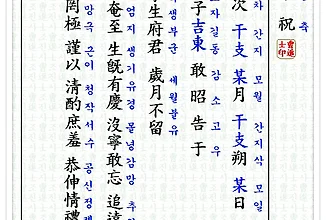 祝
축
次 干支 某月 干支 朔 某日
차 간지 모월 간지삭 모일
子 吉東 敢 昭 告 于
자 길동 감 소 고 우
生府君 歲月不留
생부군 세월불유
奄至 生旣有慶 沒寧敢忘 追遠
엄지 생기유경 몰녕감망 추
罔極 謹以 清酌庶羞 恭伸情禮
망극 근이 청작서수 공신정례